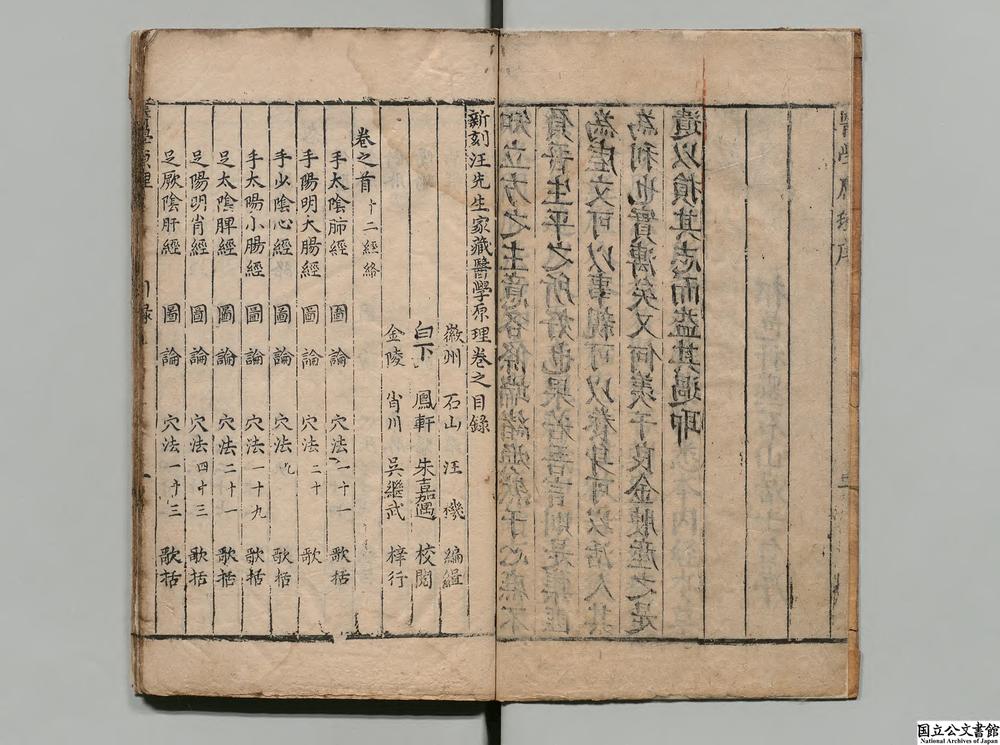 知立方之主意各條端緒煥然于心庶不
負吾生平之所好也果若吾言則是集豈
為虛文可以事親可以養身可以活人其
為利也實溥矣又何羨于良金腴產之足
遺以損其志而益其過耶
新刻汪先生家藏醫學原理卷之目錄
徽州 石山 汪機 編緝
白下 鳳軒 朱嘉遇 校閱
金陵 肖川 吳繼武 梓行
卷之首 十二經絡
手太陰肺經 圖 論 穴法一十一 歌括
手陽明大腸經 圖 論 穴法二十 歌
手少陰心經 圖 論 穴法九 歌括
手太陽小腸經 圖 論 穴法一十九 歌括
足太陰脾經 圖 論 穴法二十一 歌括
足陽明胃經 圖 論 穴法四十三 歌括
足厥陰肝經 圖 論 穴法一十三 歌括
醫學原理 目錄 一
国立公文書館
National Archives of Japan